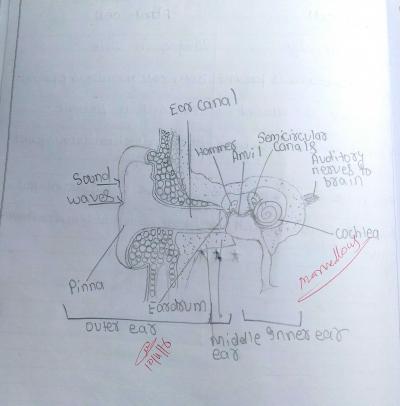 Ear canal
Hammer
Anvil
Semicircular
canals
Auditory
nerves to
brain
Sound
waves
cochlea
Pinna
Eardrum
marvellous
outer ear
middle
ear
Inner ear